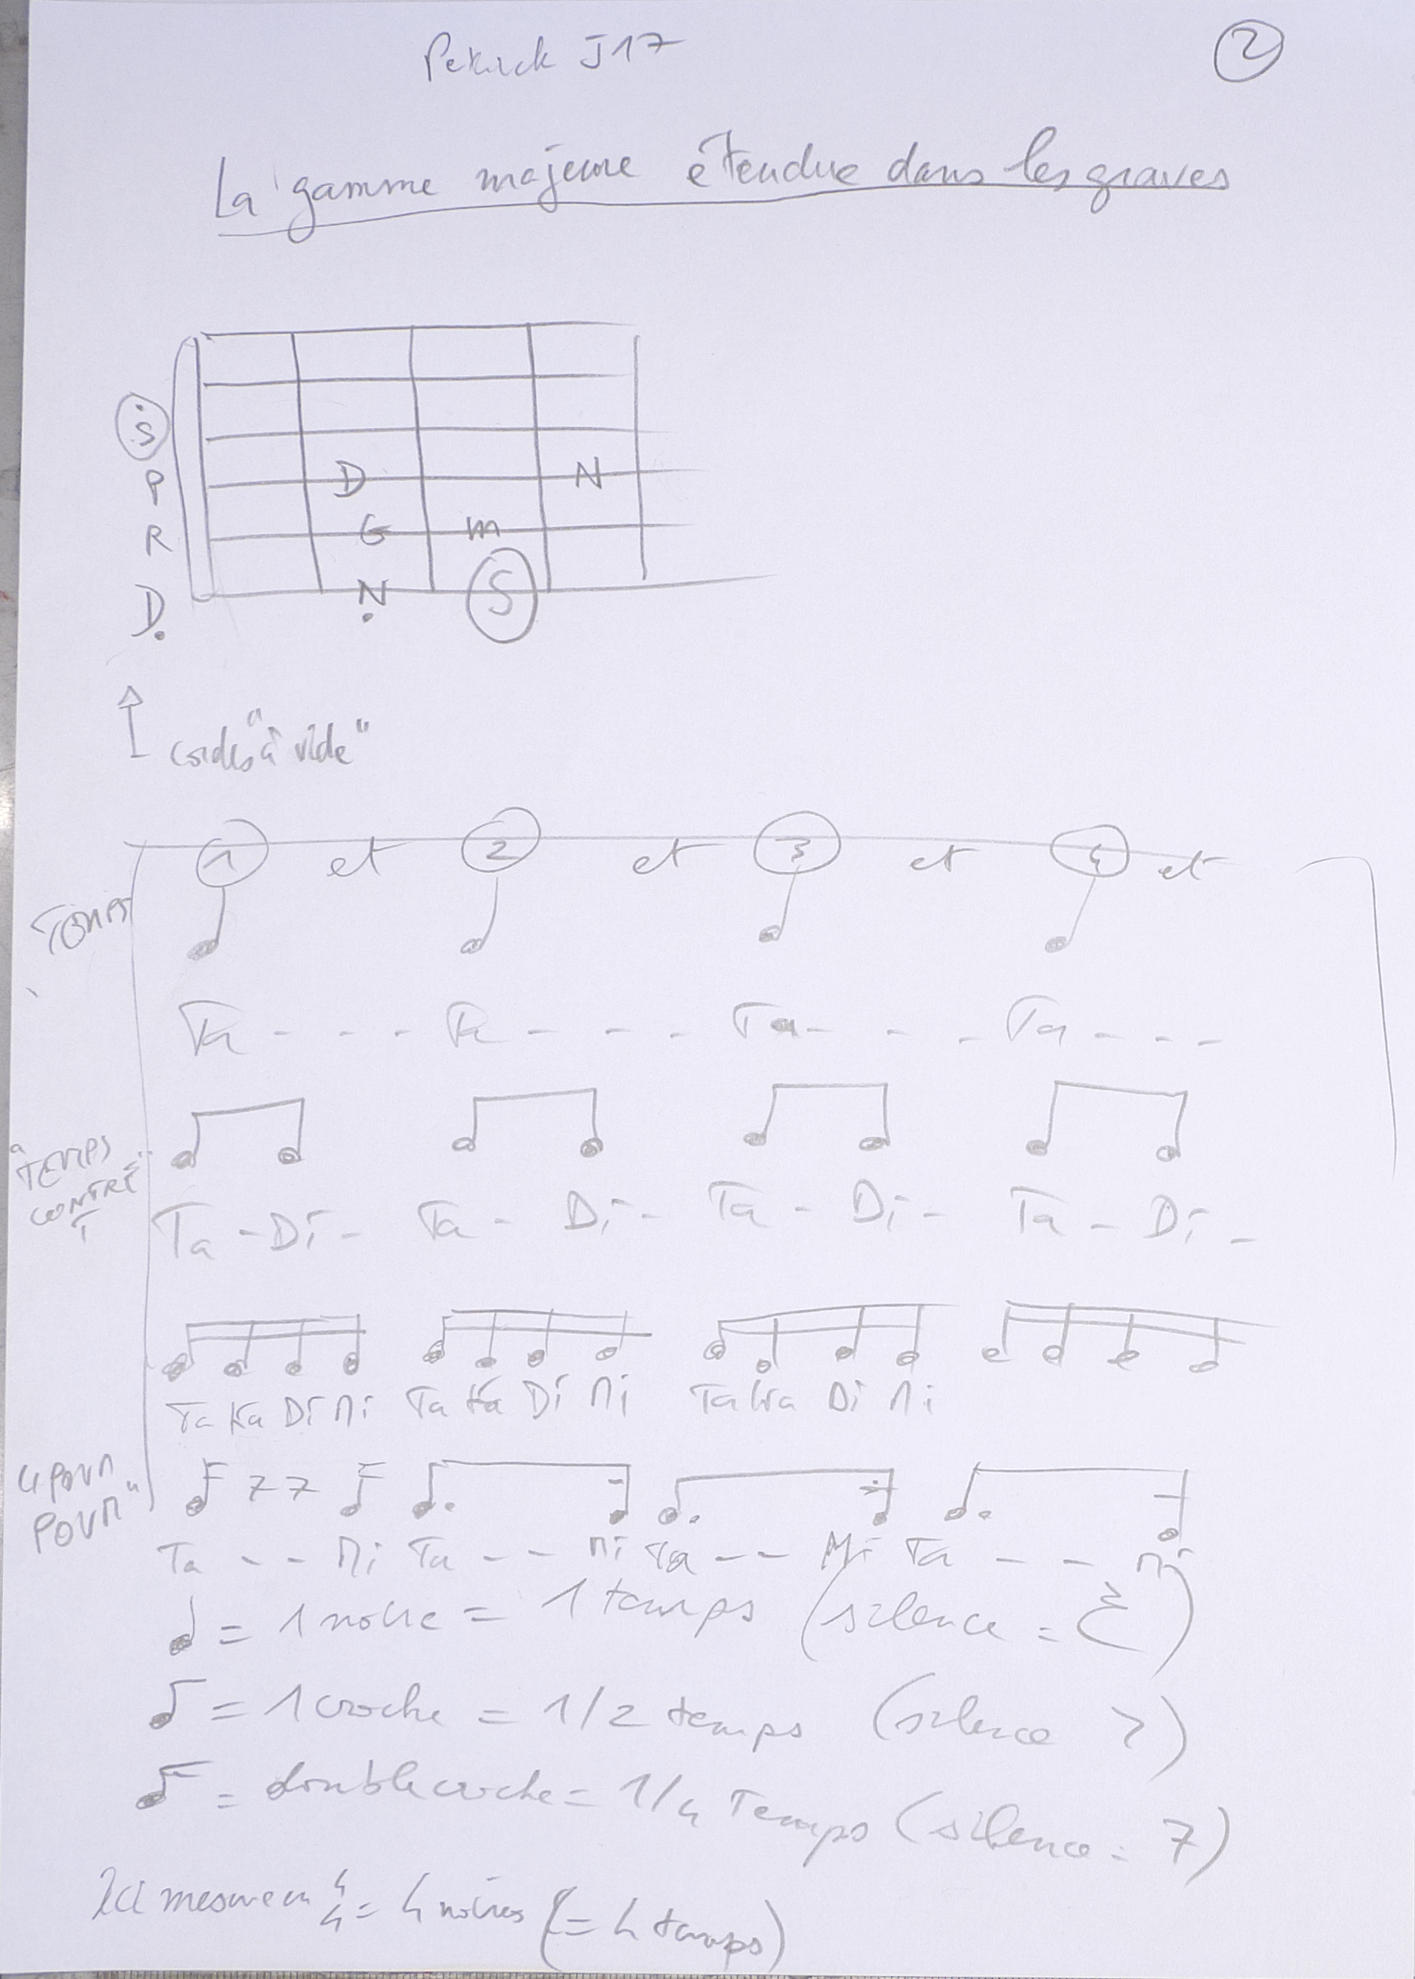 J17 2
La gamme majeure étendue dans les graves
S
P D N
R G m
D N S
cordes "à vide"
1 et 2 et 3 et 4 et
TEMPS
Ta - - - Ta - - - Ta - - - Ta - - -
"TEMPS
CONTRE
T"
Ta - Di - Ta - Di - Ta - Di - Ta - Di -
Ta Ka Di Mi Ta Ka Di Mi Ta Ka Di Mi
4 POUR
POUR"
Ta - - Mi Ta - - Mi Ta - - Mi Ta - - - Mi
= 1 noire = 1 temps (silence = )
= 1 croche = 1/2 temps (silence 7)
= double croche = 1/4 Temps (silence = 7)
Ici mesure en 4/4 = 4 noires (= 4 temps)